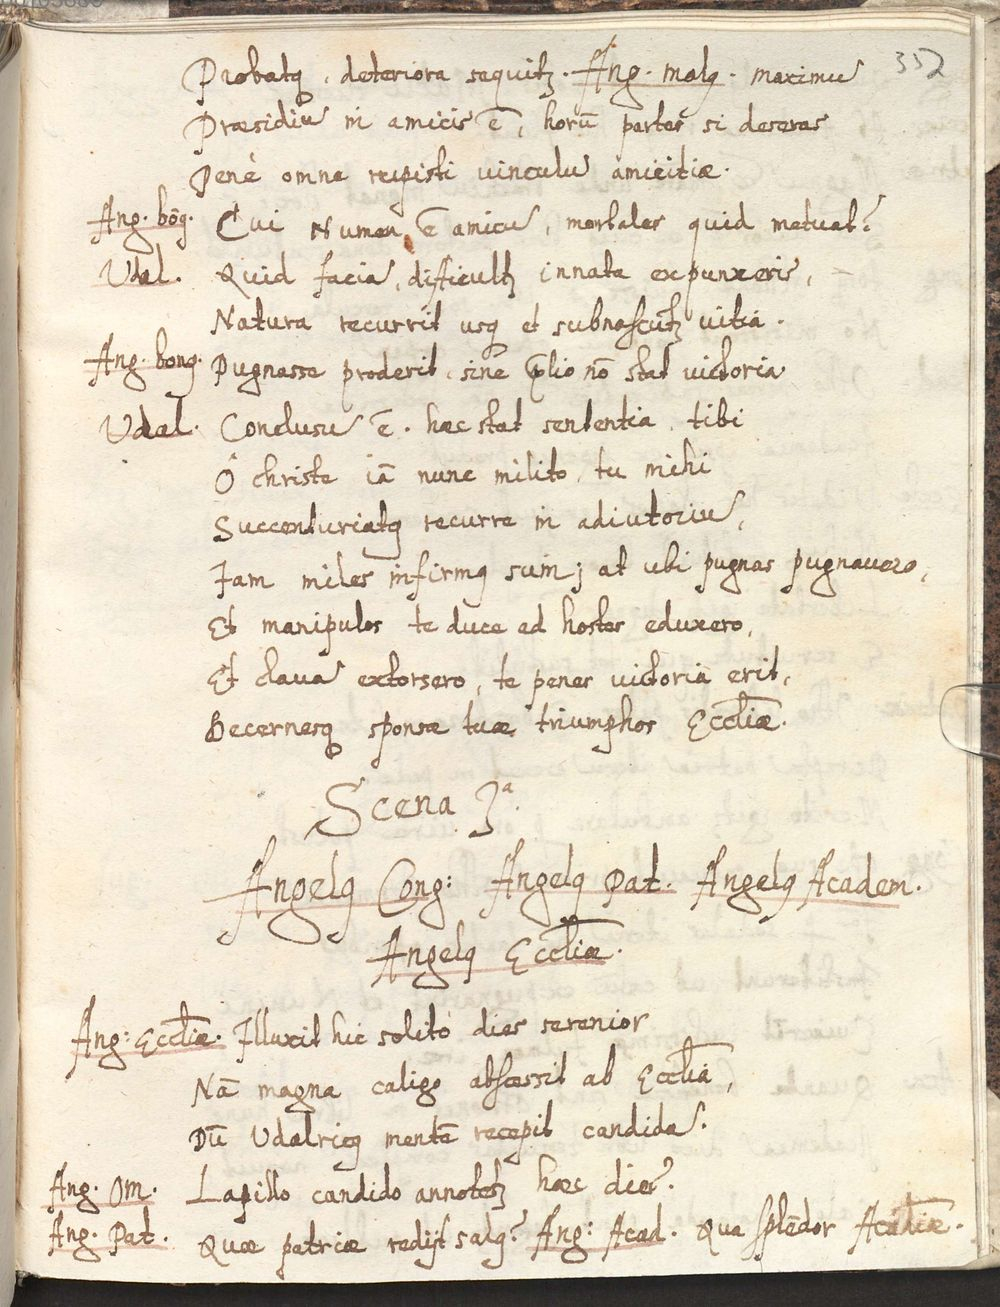 352
Probatq, deteriora sequitz. Ang. malq. maximũ
Præsidiũ in amicis ē, horū partes si deseras
Penè omne rupisti vinculũ amicitiæ.
Ang. bōq. Cui Numen ē amicũ, mortales quid metuat?
Udal. Quid faciã, difficultz innata expunxeris,
Naturã recurrit usq et subnascūtz vitia.
Ang. bonq. Pugnasse proderit, sine p̄lio nō stat victoria
Udal. Conclusũ ē. hæc stat sententia, tibi
Ô christe iā nunc milito, tu mihi
Succenturiatq recurre in adiutoriũ,
Jam miles infirmq sum; at ubi pugnas pugnavero,
Et manipulos te duce ad hostes eduxero,
Et clavã extorsero, te penes victoria erit,
Decernesq sponsæ tuæ triumphos Eccliæ.
Scena 3ª.
Angelq Cong: Angelq Pat. Angelq Academ.
Angelq Eccliæ.
Ang: Eccliæ. Illuxit hic solitò dies serenior
Nā magna caligo abscessit ab Ecclia,
Dū Udalricq mentē recepit candidã.
Ang. Om. Lapillo candido annotetz hæc dies.
Ang. Pat. Quæ patriæ rediit salq? Ang: Acad. Qua splēdor Acadiæ.